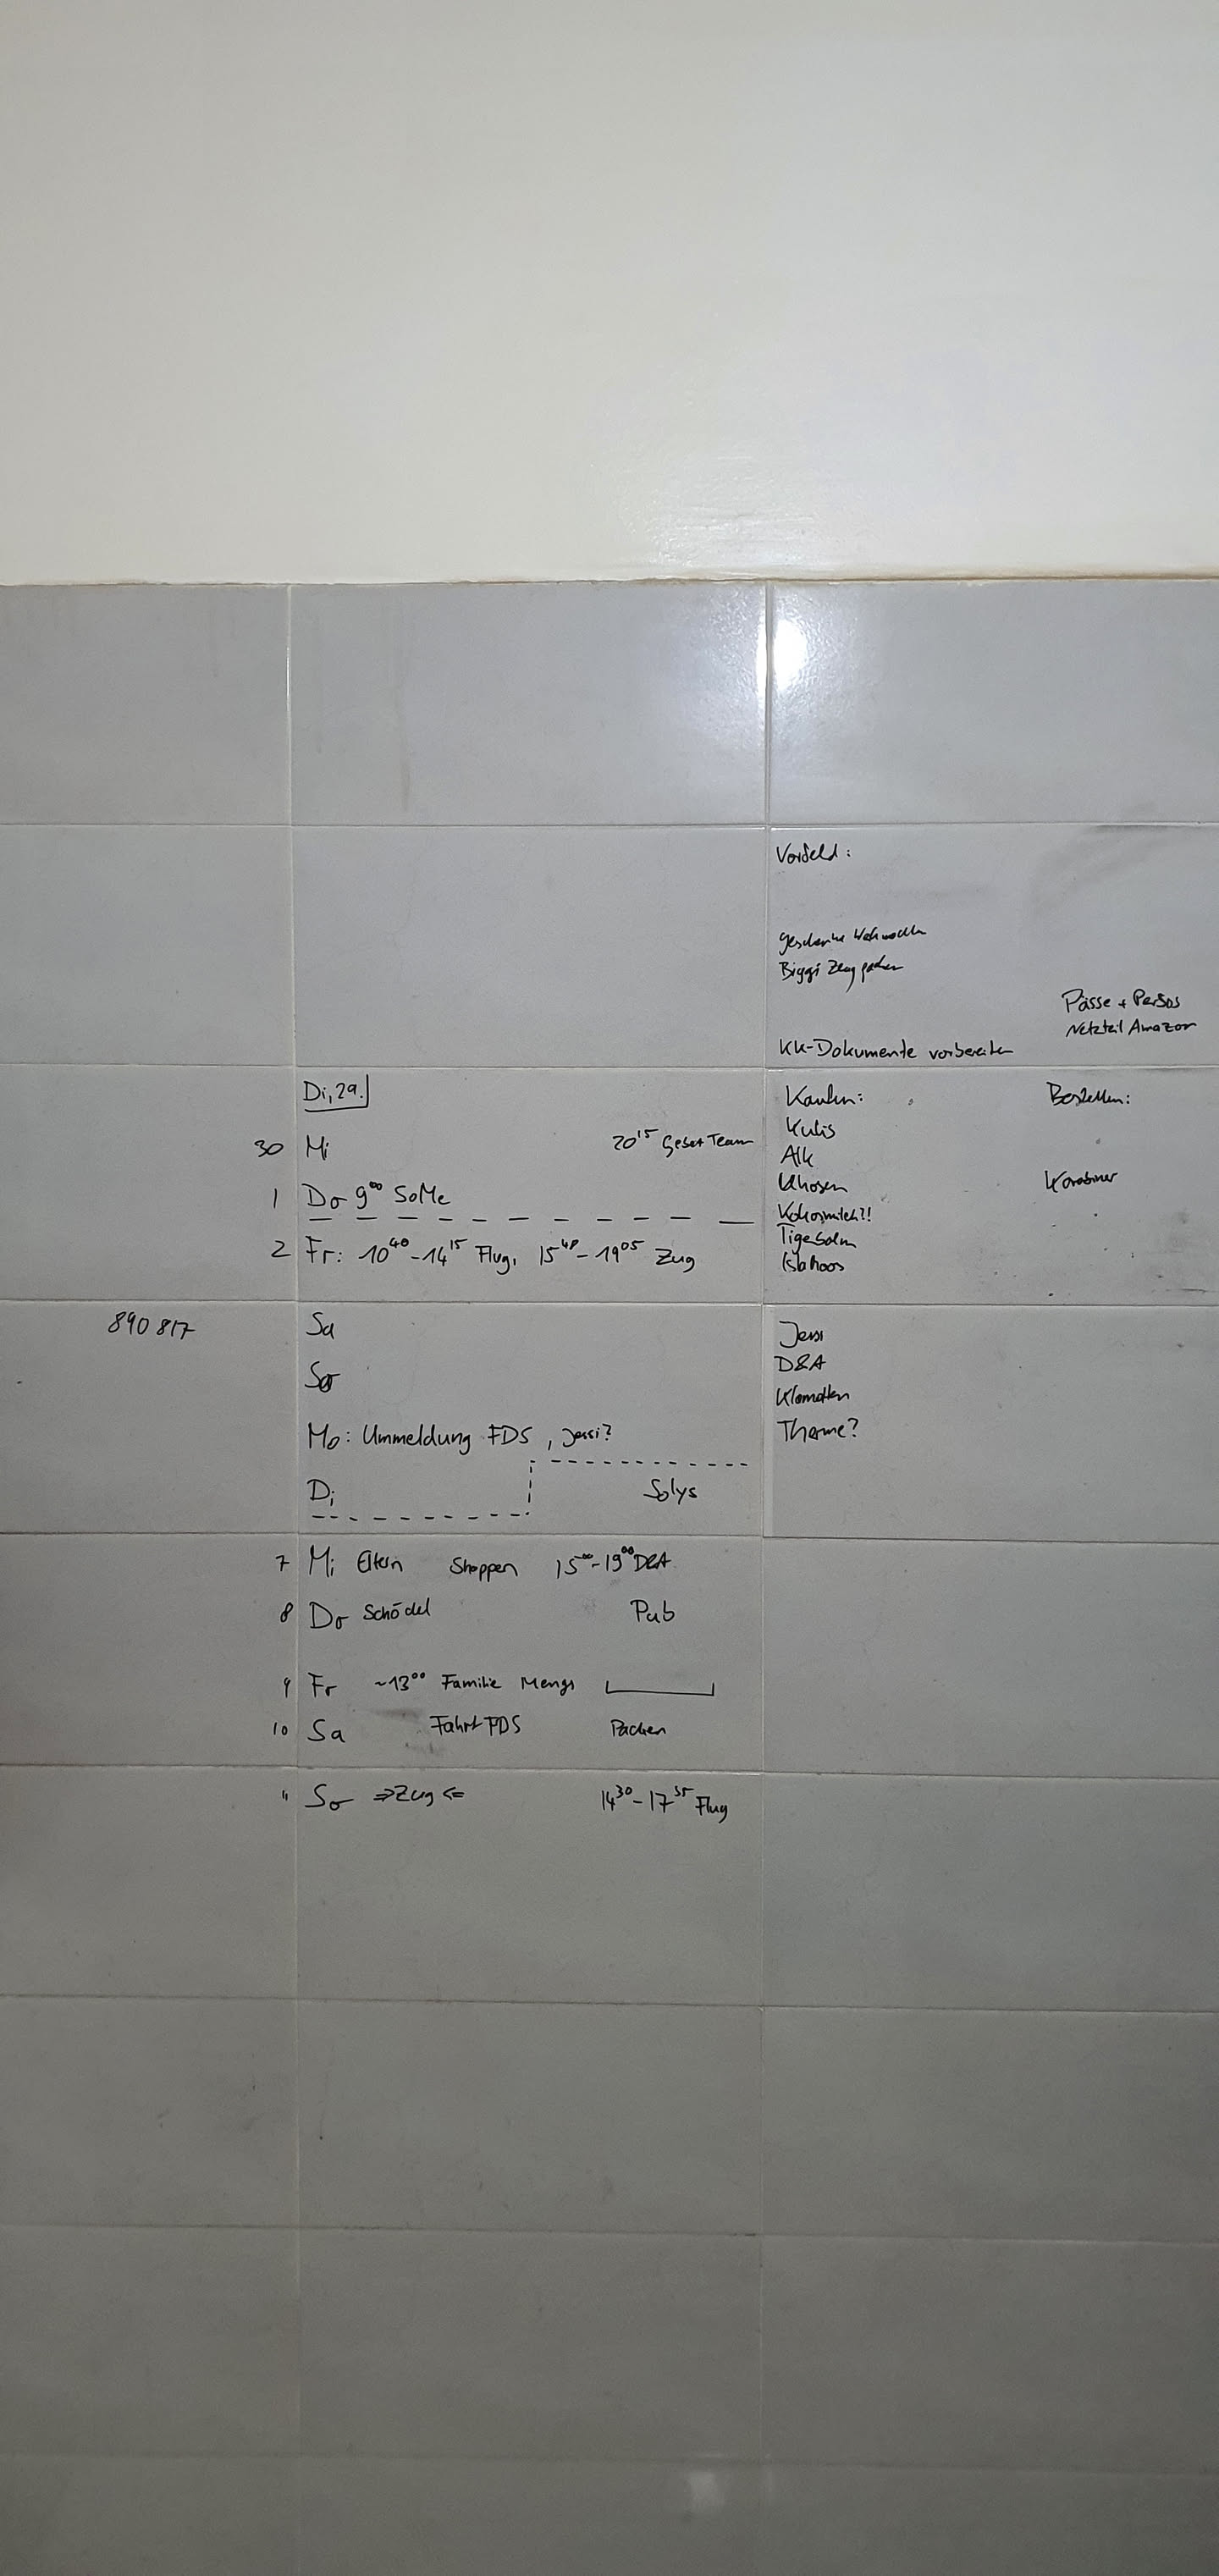 Vorfeld:
Geschenke Weihnachten
Biggi Zeug packen
Pässe + Persos
Netzteil Amazon
KK-Dokumente vorbereiten
Di, 29.
30 Mi 20¹⁵ Gebet Team
1 Do 9⁰⁰ SoMe
2 Fr: 10⁴⁰-14¹⁵ Flug, 15⁴⁸-19⁰⁵ Zug
Kaufen:
Kulis
Alk
Uhosen
Kokosmilch?!
Tigerbalm
Bestellen:
Karabiner
890 817
Sa
So
Mo: Ummeldung FDS, Jessi?
Di Solys
Jessi
D&A
Klamotten
Therme?
7 Mi Eltern Shoppen 15⁰⁰-19⁰⁰ D&A
8 Do Schödel Pub
9 Fr ~13⁰⁰ Familie Mengs
10 Sa Fahrt FDS Packen
11 So ⇒Zug⇐ 14³⁰-17³⁵ Flug